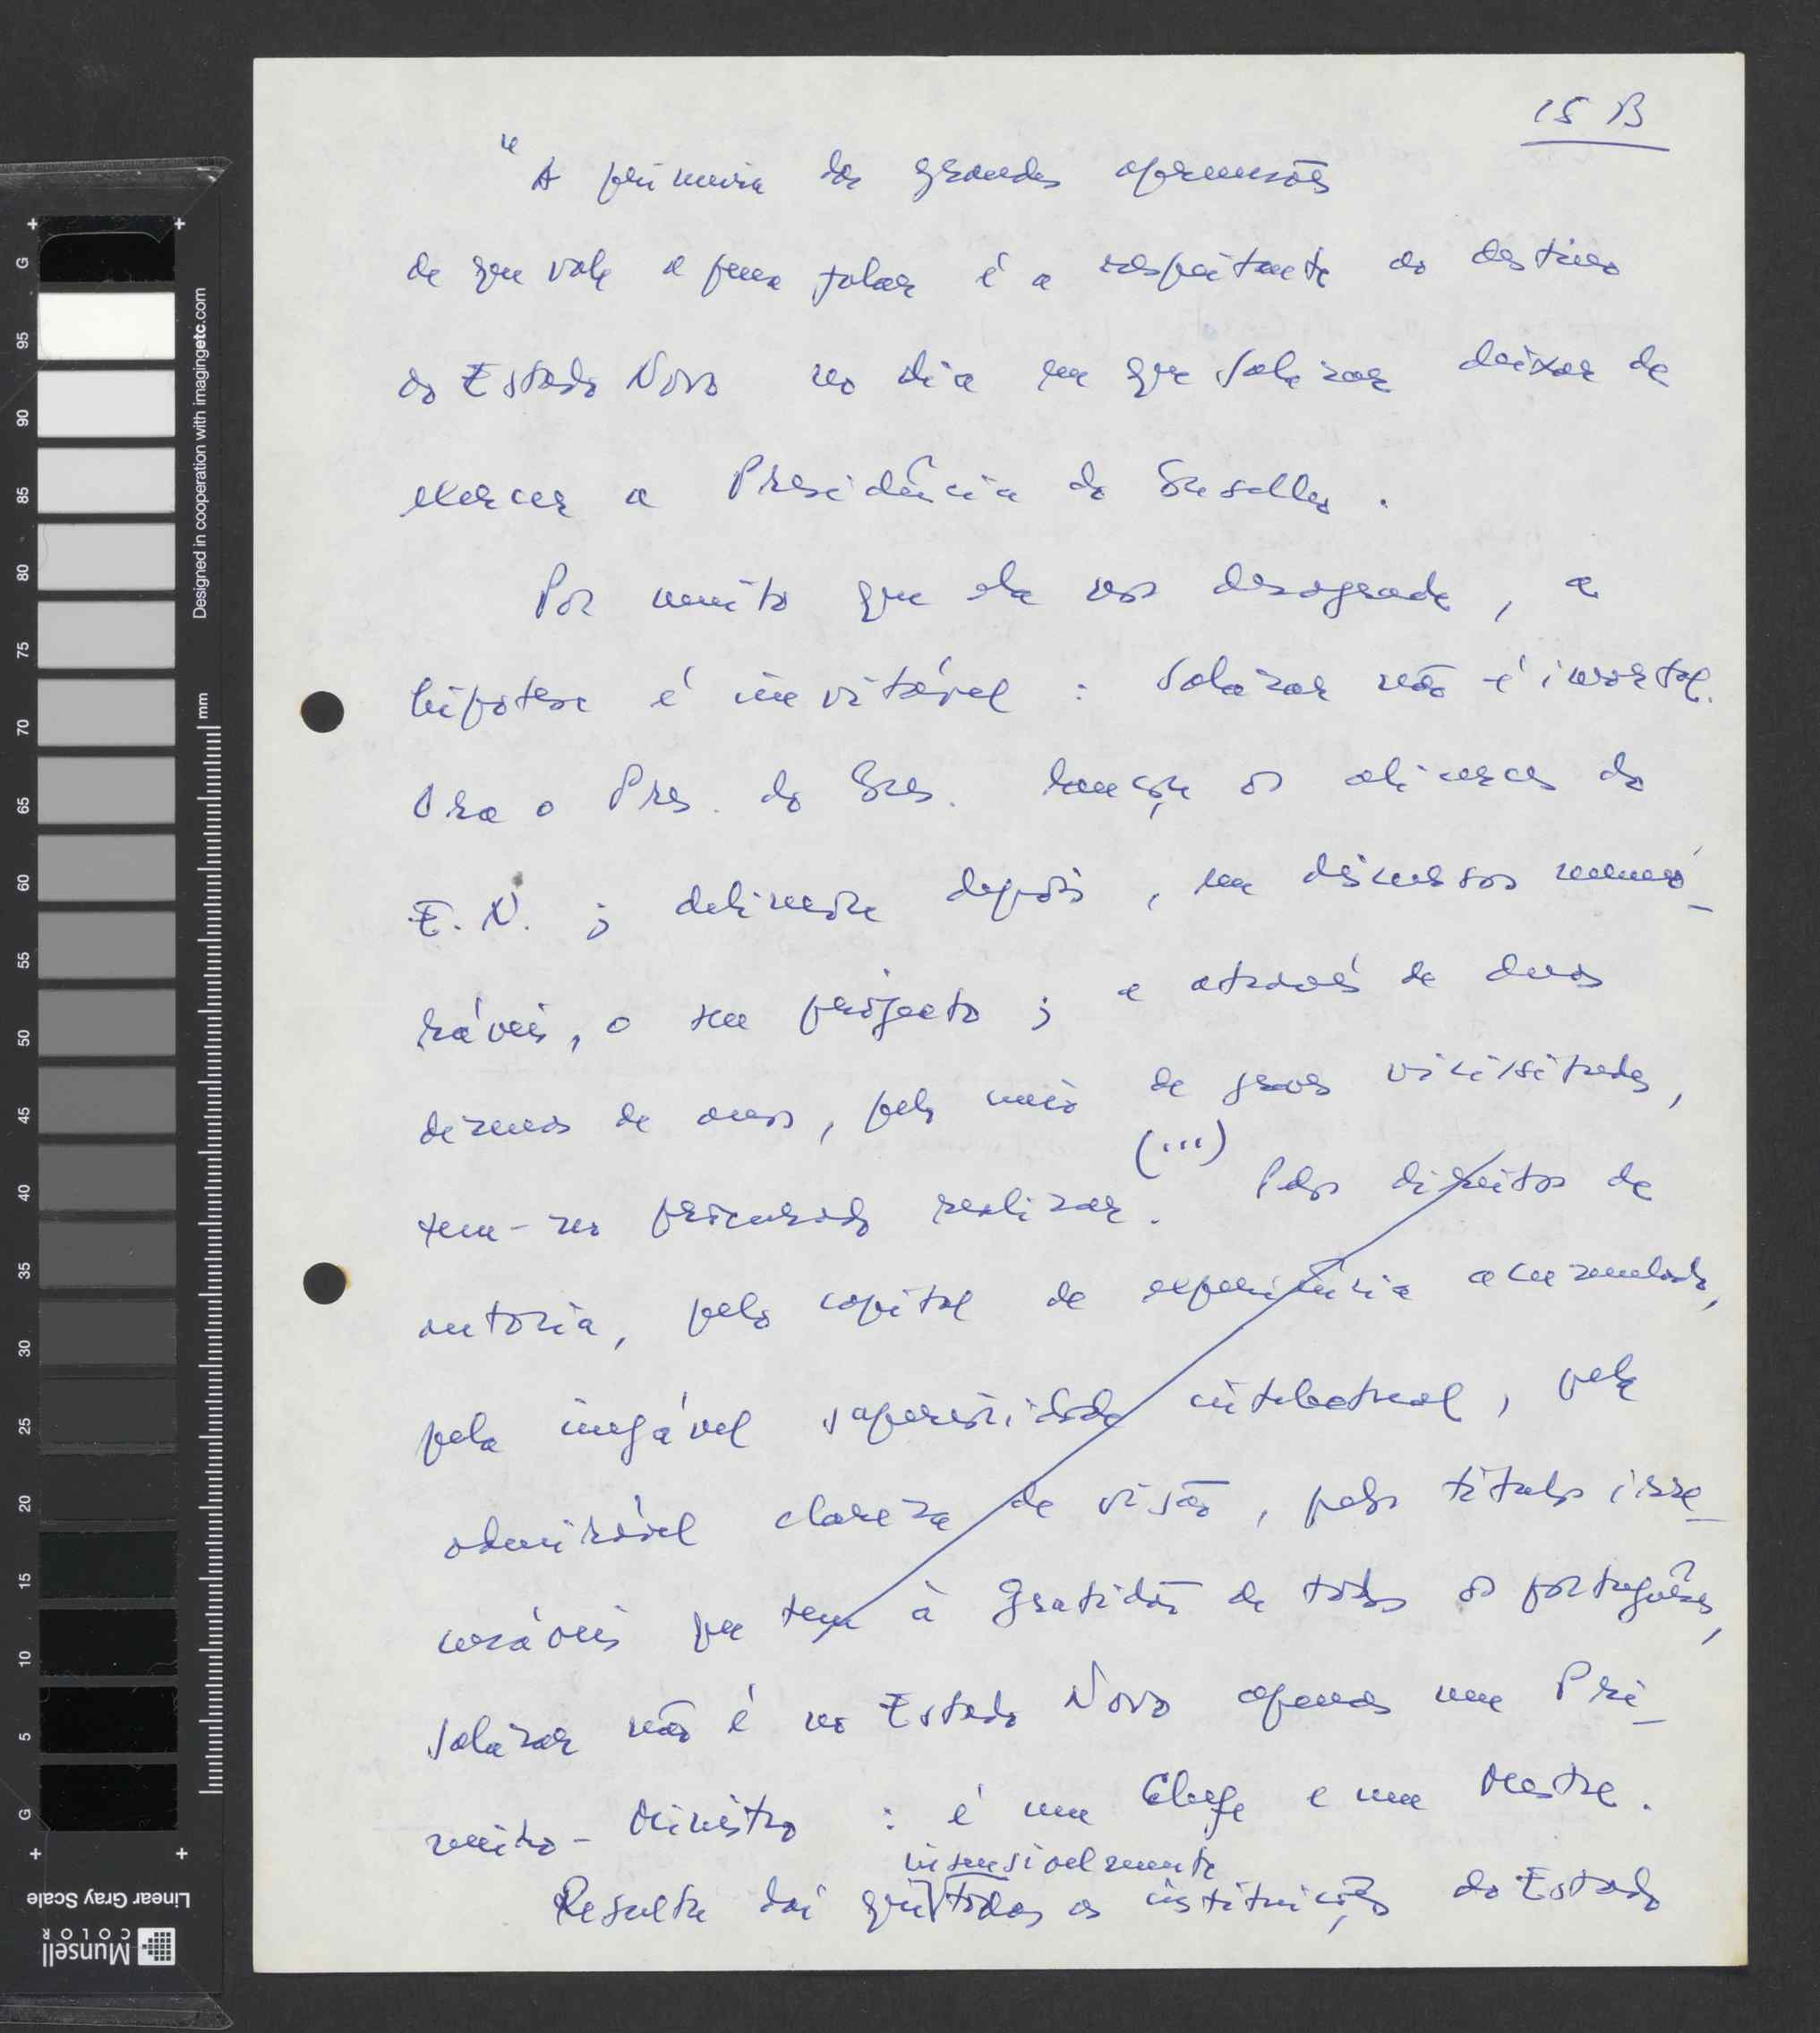 15 B
"A primeira das grandes apreensões
de que vale a pena falar é a respeitante ao destino
do Estado Novo no dia em que Salazar deixar de
exercer a Presidência do Conselho.
Por muito que ela nos desagrade, a
hipótese é inevitável: Salazar não é imortal.
Ora o Pres. do Cons. lançou os alicerces do
E. N.; delineou depois, em discursos memo-
ráveis, o seu projecto; e através de duas
dezenas de anos, pelo meio de graves vicissitudes,
tem-no procurado realizar. (...) Pelos direitos de
autoria, pelo capital de experiência acumulada,
pela inegável superioridade intelectual, pela
admirável clareza de visão, pelos títulos irre-
cusáveis que tem à gratidão de todos os portugueses,
Salazar não é no Estado Novo apenas um Pri-
meiro-Ministro: é um Chefe e um Mestre.
insensivelmente
Resulta daí que todas as instituições do Estado
Linear Gray Scale
Munsell
COLOR
Designed in cooperation with imagingetc.com
mm
G
95
90
85
80
75
70
65
60
55
50
45
40
35
30
25
20
15
10
5
G